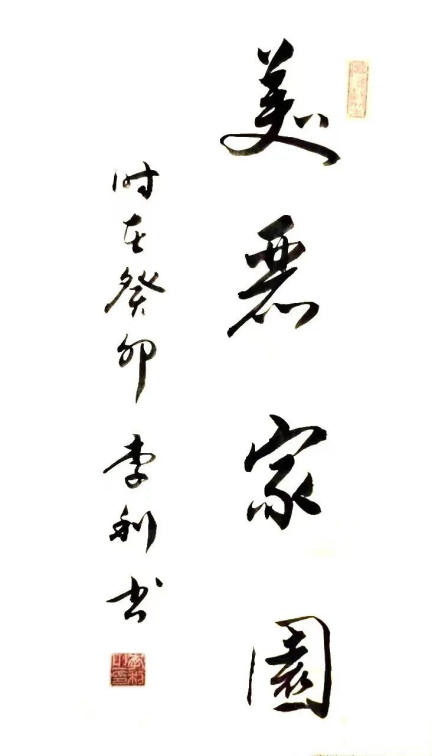 美麗家園
时在癸卯 李利书